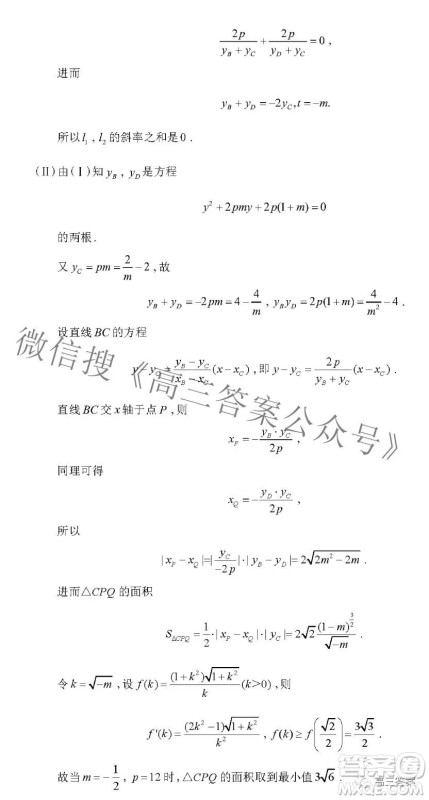 2p/(y_B+y_C) + 2p/(y_D+y_C) = 0,
进而
y_B+y_D=-2y_C,t=-m.
所以l_1,l_2的斜率之和是0.
(Ⅱ)由(Ⅰ)知y_B,y_D是方程
y²+2pmy+2p(1+m)=0
的两根.
又y_C=pm=2/m-2,故
y_B+y_D=-2pm=4-4/m,y_By_D=2p(1+m)=4/m²-4.
设直线BC的方程
y-y_C=(y_B-y_C)/(x_B-x_C)(x-x_C),即y-y_C=2p/(y_B+y_C)(x-x_C).
直线BC交x轴于点P,则
x_P=-(y_B·y_C)/2p,
同理可得
x_Q=-(y_D·y_C)/2p,
所以
|x_P-x_Q|=|y_C/(-2p)|·|y_B-y_D|=2√(2m²-2m).
进而△CPQ的面积
S_△CPQ=1/2·|x_P-x_Q|·|y_C|=2√2(1-m)^(3/2)/√(-m).
令k=√(-m),设f(k)=(1+k²)√(1+k²)/k(k>0),则
f'(k)=(2k²-1)√(1+k²)/k²,f(k)≥f(√2/2)=3√3/2.
故当m=-1/2,p=12时,△CPQ的面积取到最小值3√6.
微信搜《高三答案公众号》